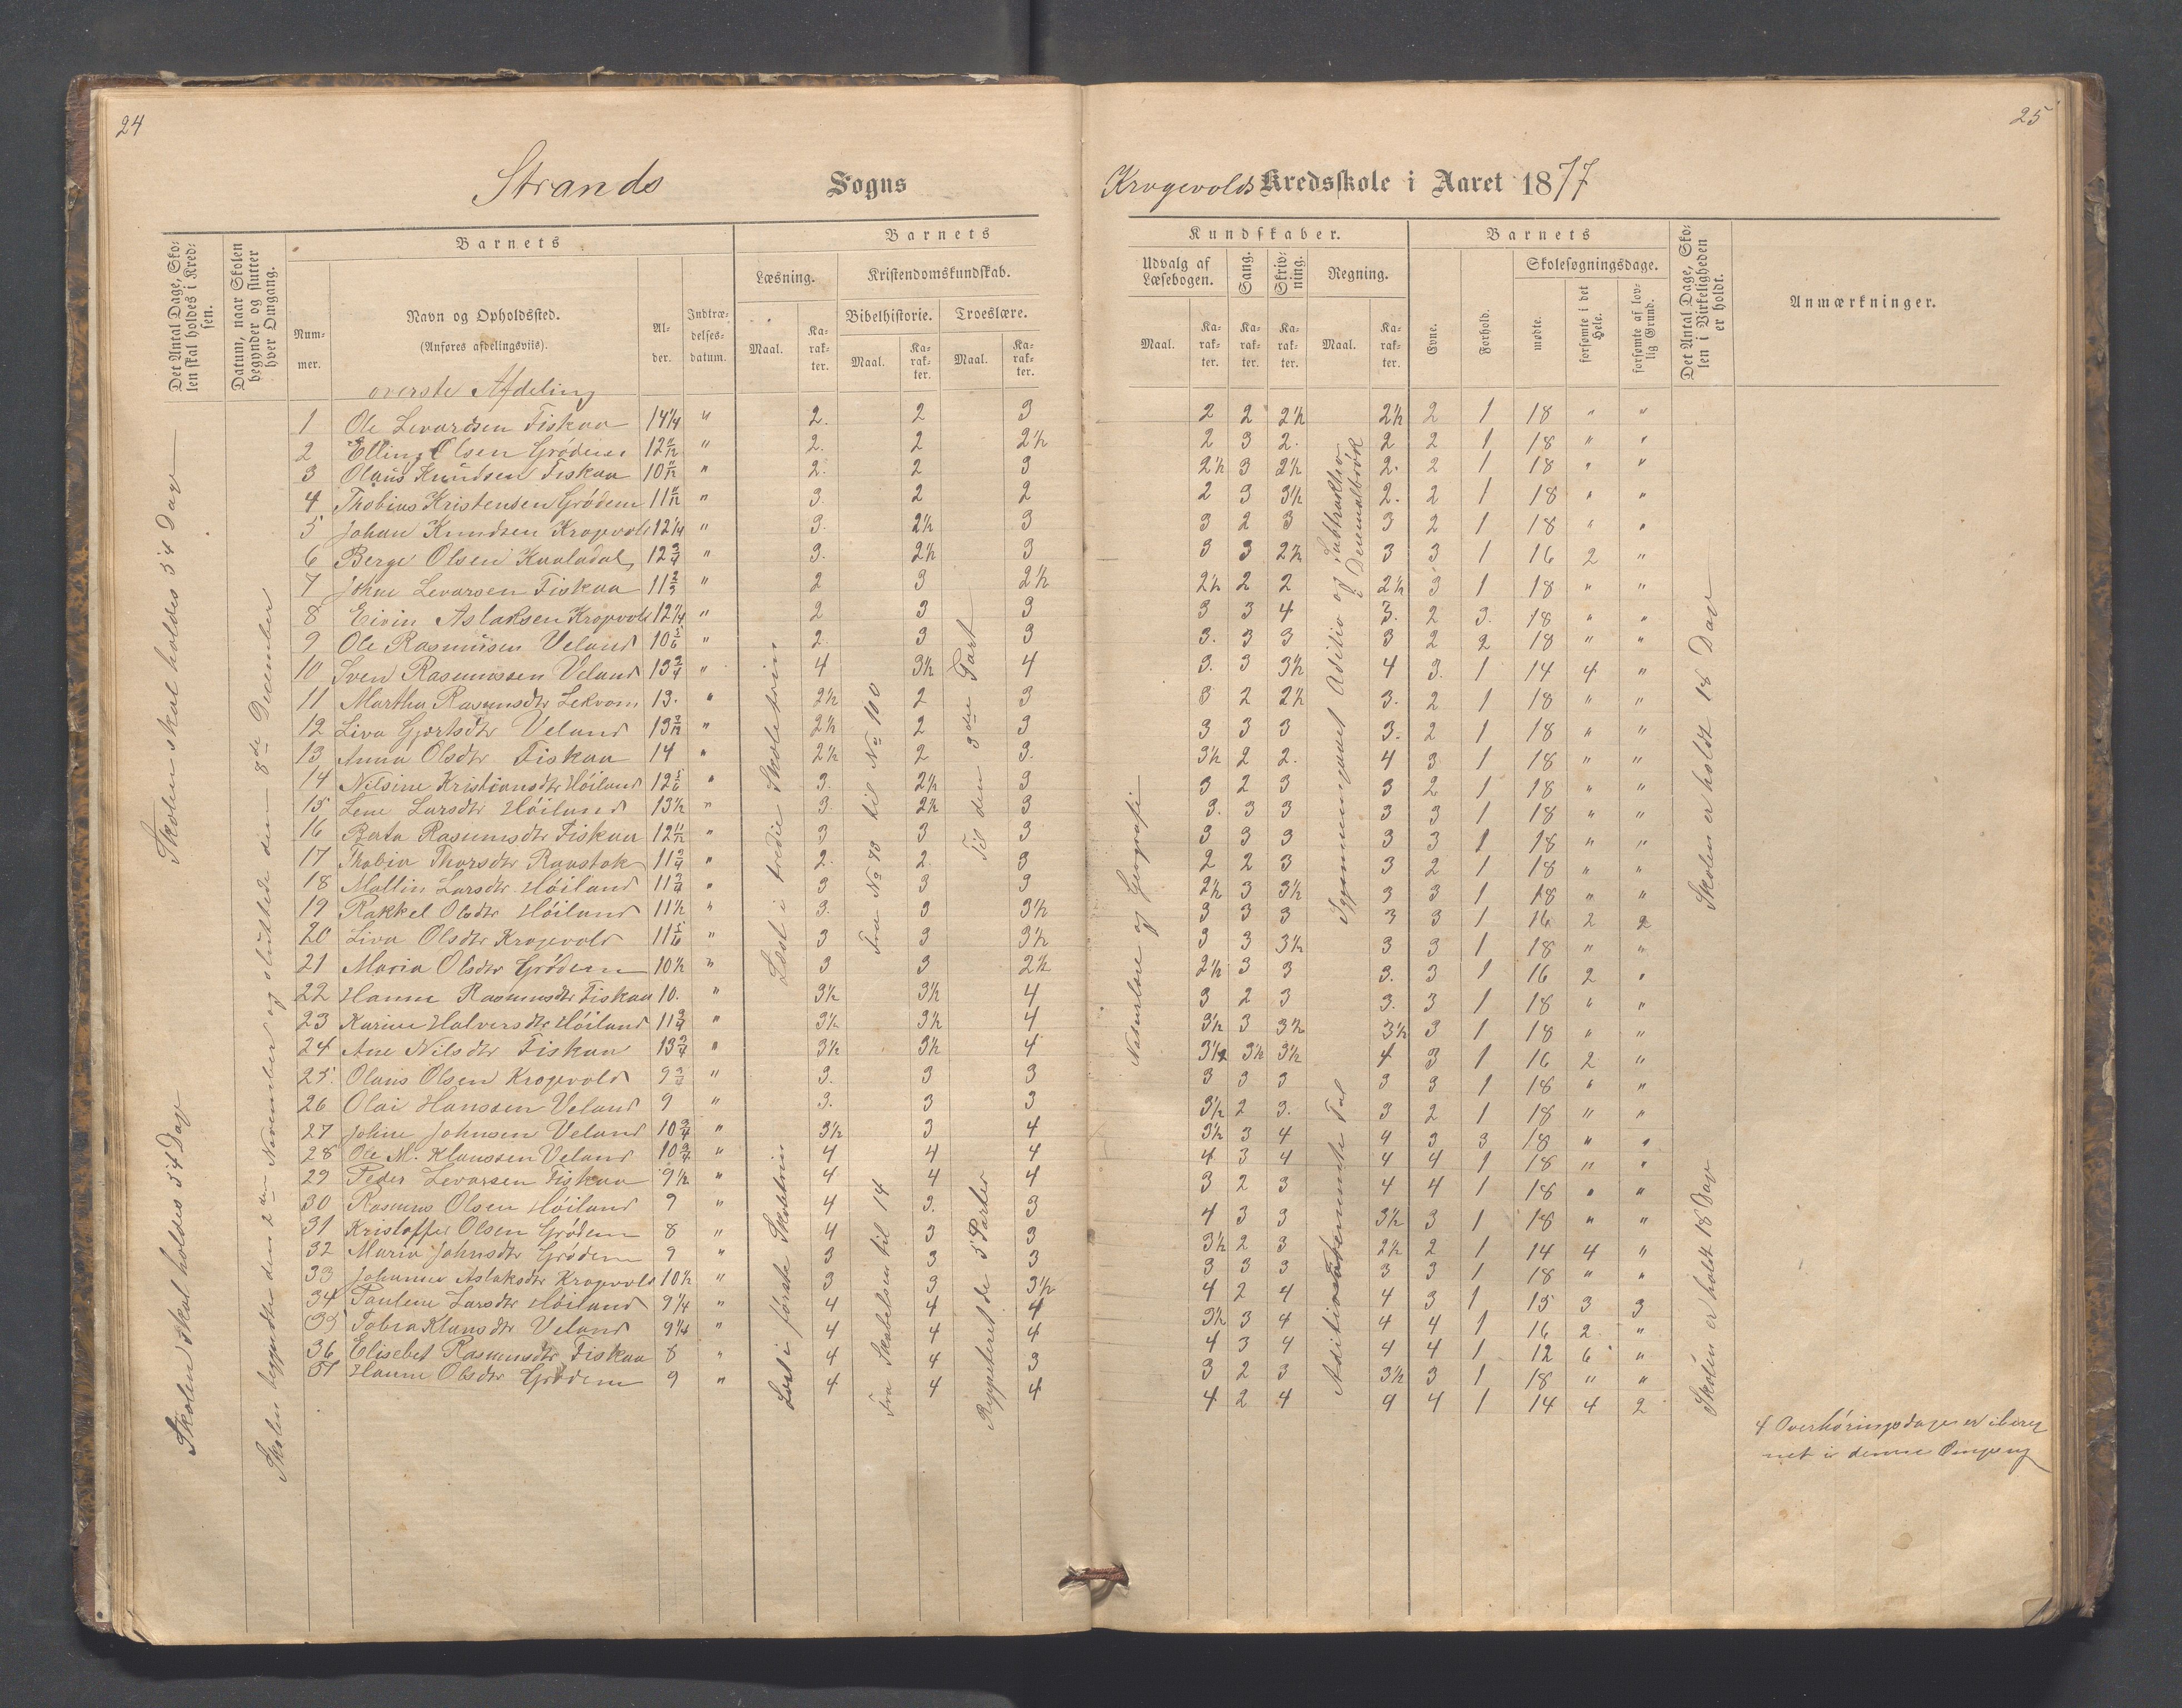 24
25
Strands Sogns
Krogevolds Kredsskole i Aaret 1877
Det Antal Dage, Skolen skal holdes i Kredsen.
Datum, naar Skolen begynder og slutter hver Omgang.
Barnets
Nummer.
Navn og Opholdssted.
(Anføres afdelingsviis).
Alder.
Indtrædelsesdatum.
Barnets
Læsning.
Kristendomskundskab.
Bibelhistorie.
Troeslære.
Maal.
Karakter.
Maal.
Karakter.
Maal.
Karakter.
Kundskaber.
Udvalg af Læsebogen.
Sang.
Skrivning.
Regning.
Maal.
Karakter.
Karakter.
Karakter.
Maal.
Karakter.
Barnets
Evne.
Forhold.
Skolesøgningsdage.
mødte.
forsømte i det Hele.
forsømte af lovlig Grund.
Det Antal Dage, Skolen i Virkeligheden er holdt.
Anmærkninger.
overste Afdeling
1 Ole Levardsen Fiskaa 14 1/4 " 2. 2 3 2 2 2 1/2 2 1/2 2 1 18 " "
2 Elling Olsen Grødem 12 11/12 " 2. 2 2 1/2 2 3 2. 2 2 1 18 " "
3 Olaus Knudsen Fiskaa 10 11/12 " 2. 2 3 2 1/2 3 2 1/2 2. 2 1 18 " "
4 Thobias Kristensen Grødem 11 11/12 " 3. 2 2 2 3 3 1/2 2. 2 1 18 " "
5 Johan Knudsen Krogevold 12 1/4 " 3. 2 1/2 3 3 2 3 3 2 1 18 " "
6 Berge Olsen Kaaladal 12 3/4 " 3. 2 1/2 3 3 3 2 1/2 3 3 1 16 2 "
7 Johne Levarsen Fiskaa 11 2/3 " 2 3 2 1/2 2 1/2 2 2 2 1/2 3 1 18 " "
8 Eivin Aslaksen Krogevold 12 1/4 " 2 3 3 3 3 4 3. 2 3. 18 " "
9 Ole Rasmusen Veland 10 5/6 " 2. 3 3 3. 3 3 3 2 2 18 " "
10 Sven Rasmussen Veland 13 3/4 " 4 3 1/2 4 3. 3 3 1/2 4 3. 1 14 4 "
11 Martha Rasmusdtr Lekvam 13. " 2 1/2 2 3 3 2 2 1/2 3. 2 1 18 " "
12 Liva Gjertsdtr Veland 13 3/12 " 2 1/2 2 3 3 3 3 3. 2 1 18 " "
13 Anna Olsdtr Fiskaa 14 " 2 1/2 2 3. 3 1/2 2 2. 4 3 1 18 " "
14 Nilsine Kristiansdtr Høiland 12 5/6 " 3. 2 1/2 3 3 2 3 3 2 1 18 " "
15 Lene Larsdtr Høiland 13 1/2 " 3. 2 1/2 3 3. 3 3 3 3 1 18 " "
16 Berta Rasmusdtr Fiskaa 12 11/12 " 3 3 3 3 3 3 3 3 1 18 " "
17 Thobia Thorsdtr Raustok 11 3/4 " 2. 2. 3 2 2 3 3 2 1 18 " "
18 Mallin Larsdtr Høiland 11 3/4 " 3 3 3 2 1/2 3 3 1/2 3 3 1 18 " "
19 Rakkel Olsdtr Høiland 11 1/2 " 3. 3 3 1/2 3 3 3 3 3 1 16 2 2
20 Liva Olsdtr Krogevold 11 5/6 " 3 3 3 1/2 3 3 3 1/2 3 3 1 18 " "
21 Maria Olsdtr Grødem 10 1/2 " 3 3 2 1/2 2 1/2 3 3 3. 3 1 16 2 "
22 Hanne Rasmusdtr Fiskaa 10. " 3 1/2 3 1/2 4 3 2 3 3. 3 1 18 " "
23 Karine Halversdtr Høiland 11 3/4 " 3 1/2 3 1/2 4 3 1/2 3 3 1/2 3 1/2 3 1 18 " "
24 Ane Nilsdtr Fiskaa 13 3/4 " 3 1/2 3 1/2 4 3 1/2 3 1/2 3 1/2 4 3 1 16 2 "
25. Olaus Olsen Krogevold 9 3/4 " 3. 3 3 3 3 3 3 3 1 18 " "
26 Olai Hanssen Veland 9 " 3. 3 3 3 1/2 2 3. 3 2 1 18 " "
27 Johne Johnsen Veland 10 3/4 " 3 1/2 3 4 3 1/2 3 4 4 3 3 18 " "
28 Ole M. Klaussen Veland 10 3/4 " 4 4 4 4 3 4 4 4 1 18 " "
29 Peder Levarsen Fiskaa 9 1/2 " 4 4 4 3 2 3 4 4 1 18 " "
30 Rasmus Olsen Høiland 9 " 4 3. 3 4 3 3 3 1/2 3 1 18 " "
31 Kristoffer Olsen Grødem 8 " 4 3 3 3 1/2 2 3 2 1/2 2 1 14 4 "
32 Maria Johnsdtr Grødem 9 " 3 3 3 3 3 3 3 3 1 18 " "
33 Johanna Aslaksdtr Krogevold 10 1/2 " 3 3 3 1/2 4 2 4 4 3 1 15 3 3
34 Pauline Larsdtr Høiland 9 1/4 " 4 4 4 3 1/2 3 4 4 4 1 16 2 "
35 Tobia Klausdtr Veland 9 1/4 " 4 4 4 4 3 4 4 4 1 12 6 "
36 Elisebet Rasmusdtr Fiskaa 8 " 4 4 3 3 2 3 3 1/2 3 1 18 " "
37 Hanne Olsdtr Grødem 9 " 4 4 4 4 2 4 4 4 1 14 4 2
Skolen skal holdes 54 Dage
Skolen skal holdes 54 Dage
Skolen begyndte den 2den November og sluttede den 8de December
Læst i tredie Skoletrin
Læst i første Skoletrin
Fra No 70 til No 100
Fra Skabelsen til 14
Til den 3die Part
Reppeteret de 5 Parter
Naturlære og Geografi
Addition og Subtraktion i Decemalbrøk
Skolen er holdt 18 Dage
Skolen er holdt 18 Dage
4 Overhøringsdage er ibereg
net i denne Omgang